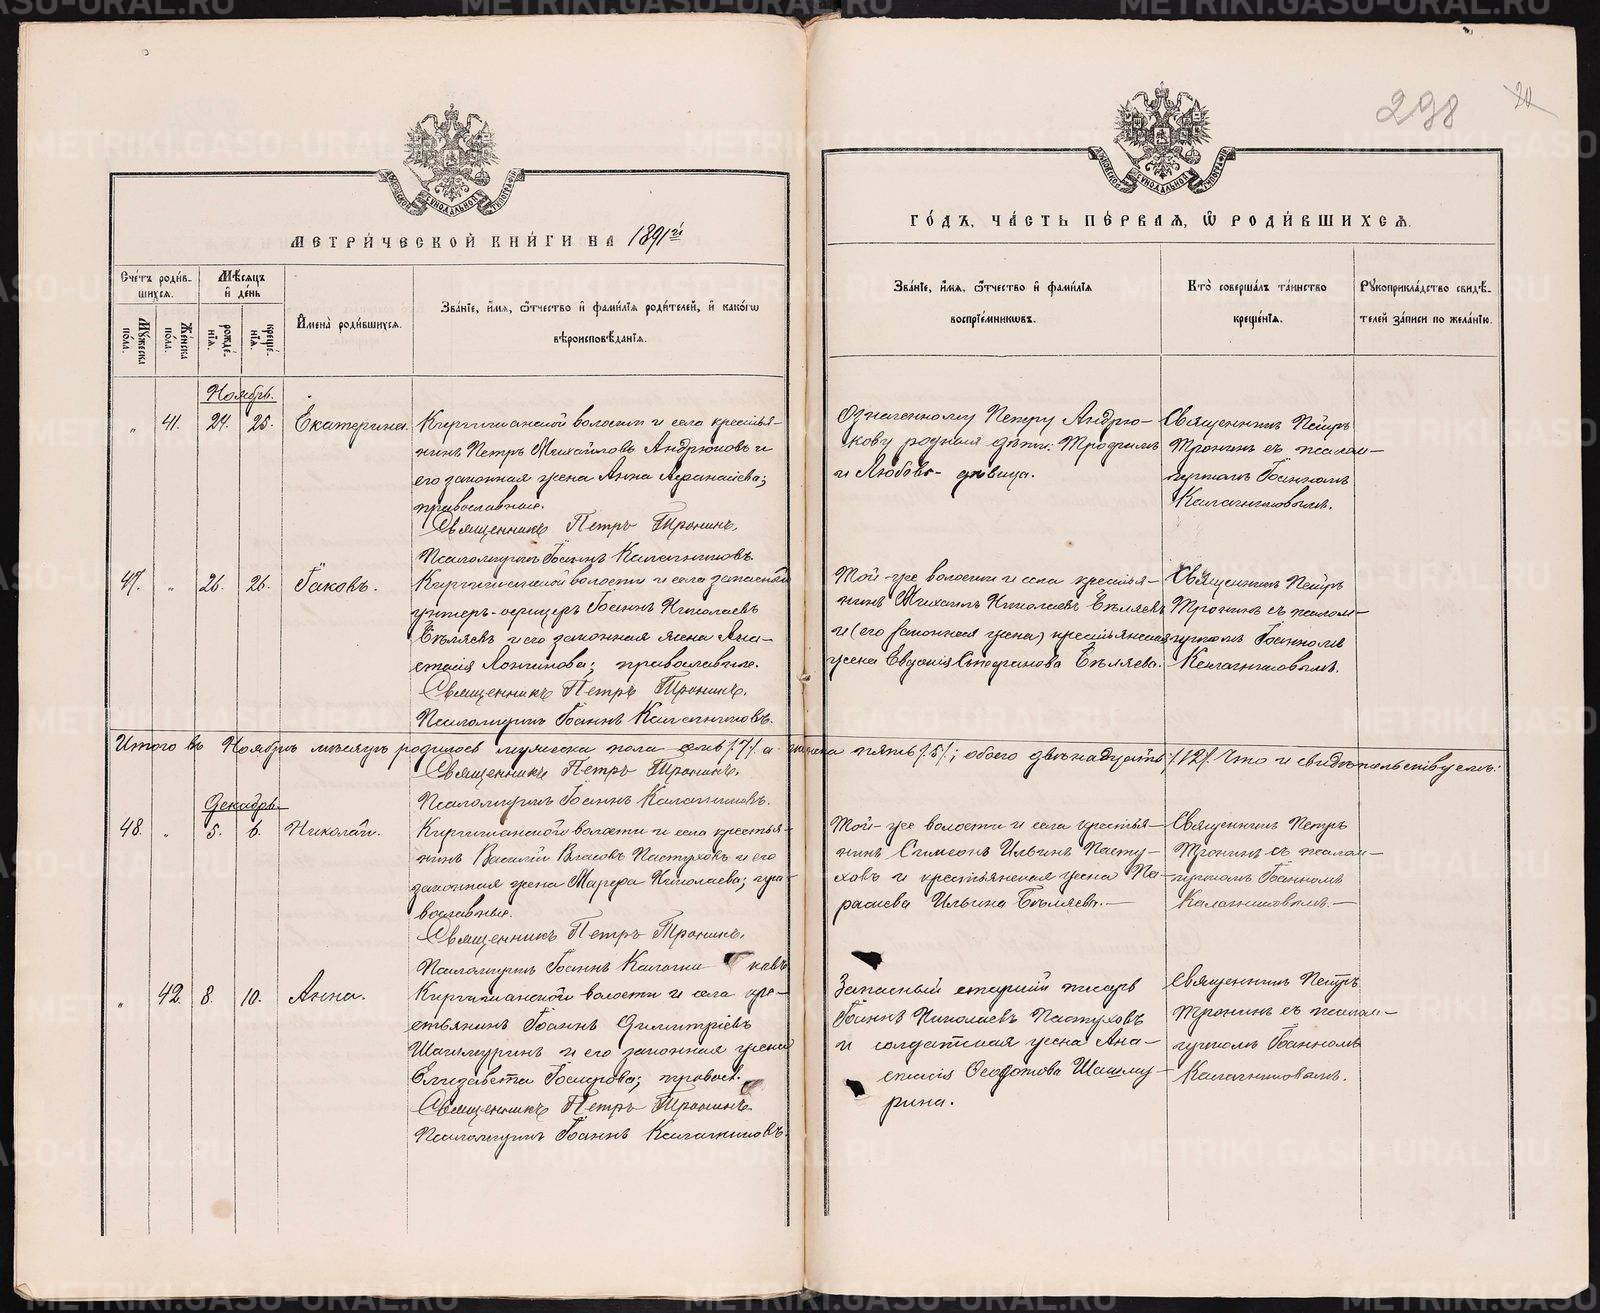 298
20
МЕТРИ́ЧЕСКОЙ КНИ́ГИ НА 1891й
ГО́ДЪ, ЧА́СТЬ ПЕ́РВАЯ, Ѡ РОДИ́ВШИХСЯ.
Сче́тъ роди́в-
шихся.
Му́жеска по́ла.
Же́нска по́ла.
Мѣ́сяцъ и де́нь
рожде́-нія.
креще́-нія.
Имена̀ роди́вшихся.
Зва́ніе, и́мя, ѻ́тчество и фами́лія роди́телей, и како́гѡ
вѣроисповѣ́данія.
Зва́ніе, и́мя, ѻ́тчество и фами́лія
воспріе́мниковъ.
Кто̀ соверша́лъ та́инство
креще́нія.
Рꙋкоприкла́дство свидѣ́-
телей за́писи по жела́нію.
Ноябрь.
„ 41. 24. 25. Екатерина.
Киргишанской волости и села крестья-
нинъ Петръ Михайловъ Андрюковъ и
его законная жена Анна Афанасіева;
православные.
Священникъ Петръ Тронинъ.
Псаломщикъ Іоаннъ Калачниковъ.
Означенному Петру Андрю-
кову родныя дѣти: Трофимъ
и Любовь - дѣвица.
Священникъ Петръ
Тронинъ съ псалом-
щикомъ Іоанномъ
Калачниковымъ.
47. „ 26. 26. Іаковъ.
Киргишанской волости и села запасный
унтеръ-офицеръ Іоаннъ Николаевъ
Бѣляевъ и его законная жена Ана-
стасія Лонгинова; православные.
Священникъ Петръ Тронинъ.
Псаломщикъ Іоаннъ Калачниковъ.
Той-же волости и села крестья-
нинъ Михаилъ Николаевъ Бѣляевъ
и (его законная жена) крестьянская
жена Евдокія Стефанова Бѣляева.
Священникъ Петръ
Тронинъ съ псалом-
щикомъ Іоанномъ
Калачниковымъ.
Итого въ Ноябрѣ мѣсяцѣ родилось мужеска пола семь /7/ а женска пять /5/; обоего двѣнадцать /12/. Что и свидѣтельствуемъ:
Священникъ Петръ Тронинъ.
Псаломщикъ Іоаннъ Калачниковъ.
Декабрь
48. „ 5. 6. Николай.
Киргишанской волости и села крестья-
нинъ Василій Власовъ Пастуховъ и его
законная жена Марфа Николаева; пра-
вославные.
Священникъ Петръ Тронинъ.
Псаломщикъ Іоаннъ Калачниковъ
Той-же волости и села крестья-
нинъ Симеонъ Ильинъ Пасту-
ховъ и крестьянская жена Па-
раскева Ильина Бѣляева.-
Священникъ Петръ
Тронинъ съ псалом-
щикомъ Іоанномъ
Калачниковымъ.-
„ 42. 8. 10. Анна.
Киргишанской волости и села кре-
стьянинъ Іоаннъ Димитріевъ
Шашмуринъ и его законная жена
Елизавета Іосифова; правосл.
Священникъ Петръ Тронинъ.
Псаломщикъ Іоаннъ Калачниковъ.
Запасный старшій писарь
Іоаннъ Николаевъ Пастуховъ
и солдатская жена Ана-
стасія Ѳеодотова Шашму-
рина.
Священникъ Петръ
Тронинъ съ псалом-
щикомъ Іоанномъ
Калачниковымъ.
METRIKI.GASO-URAL.RU